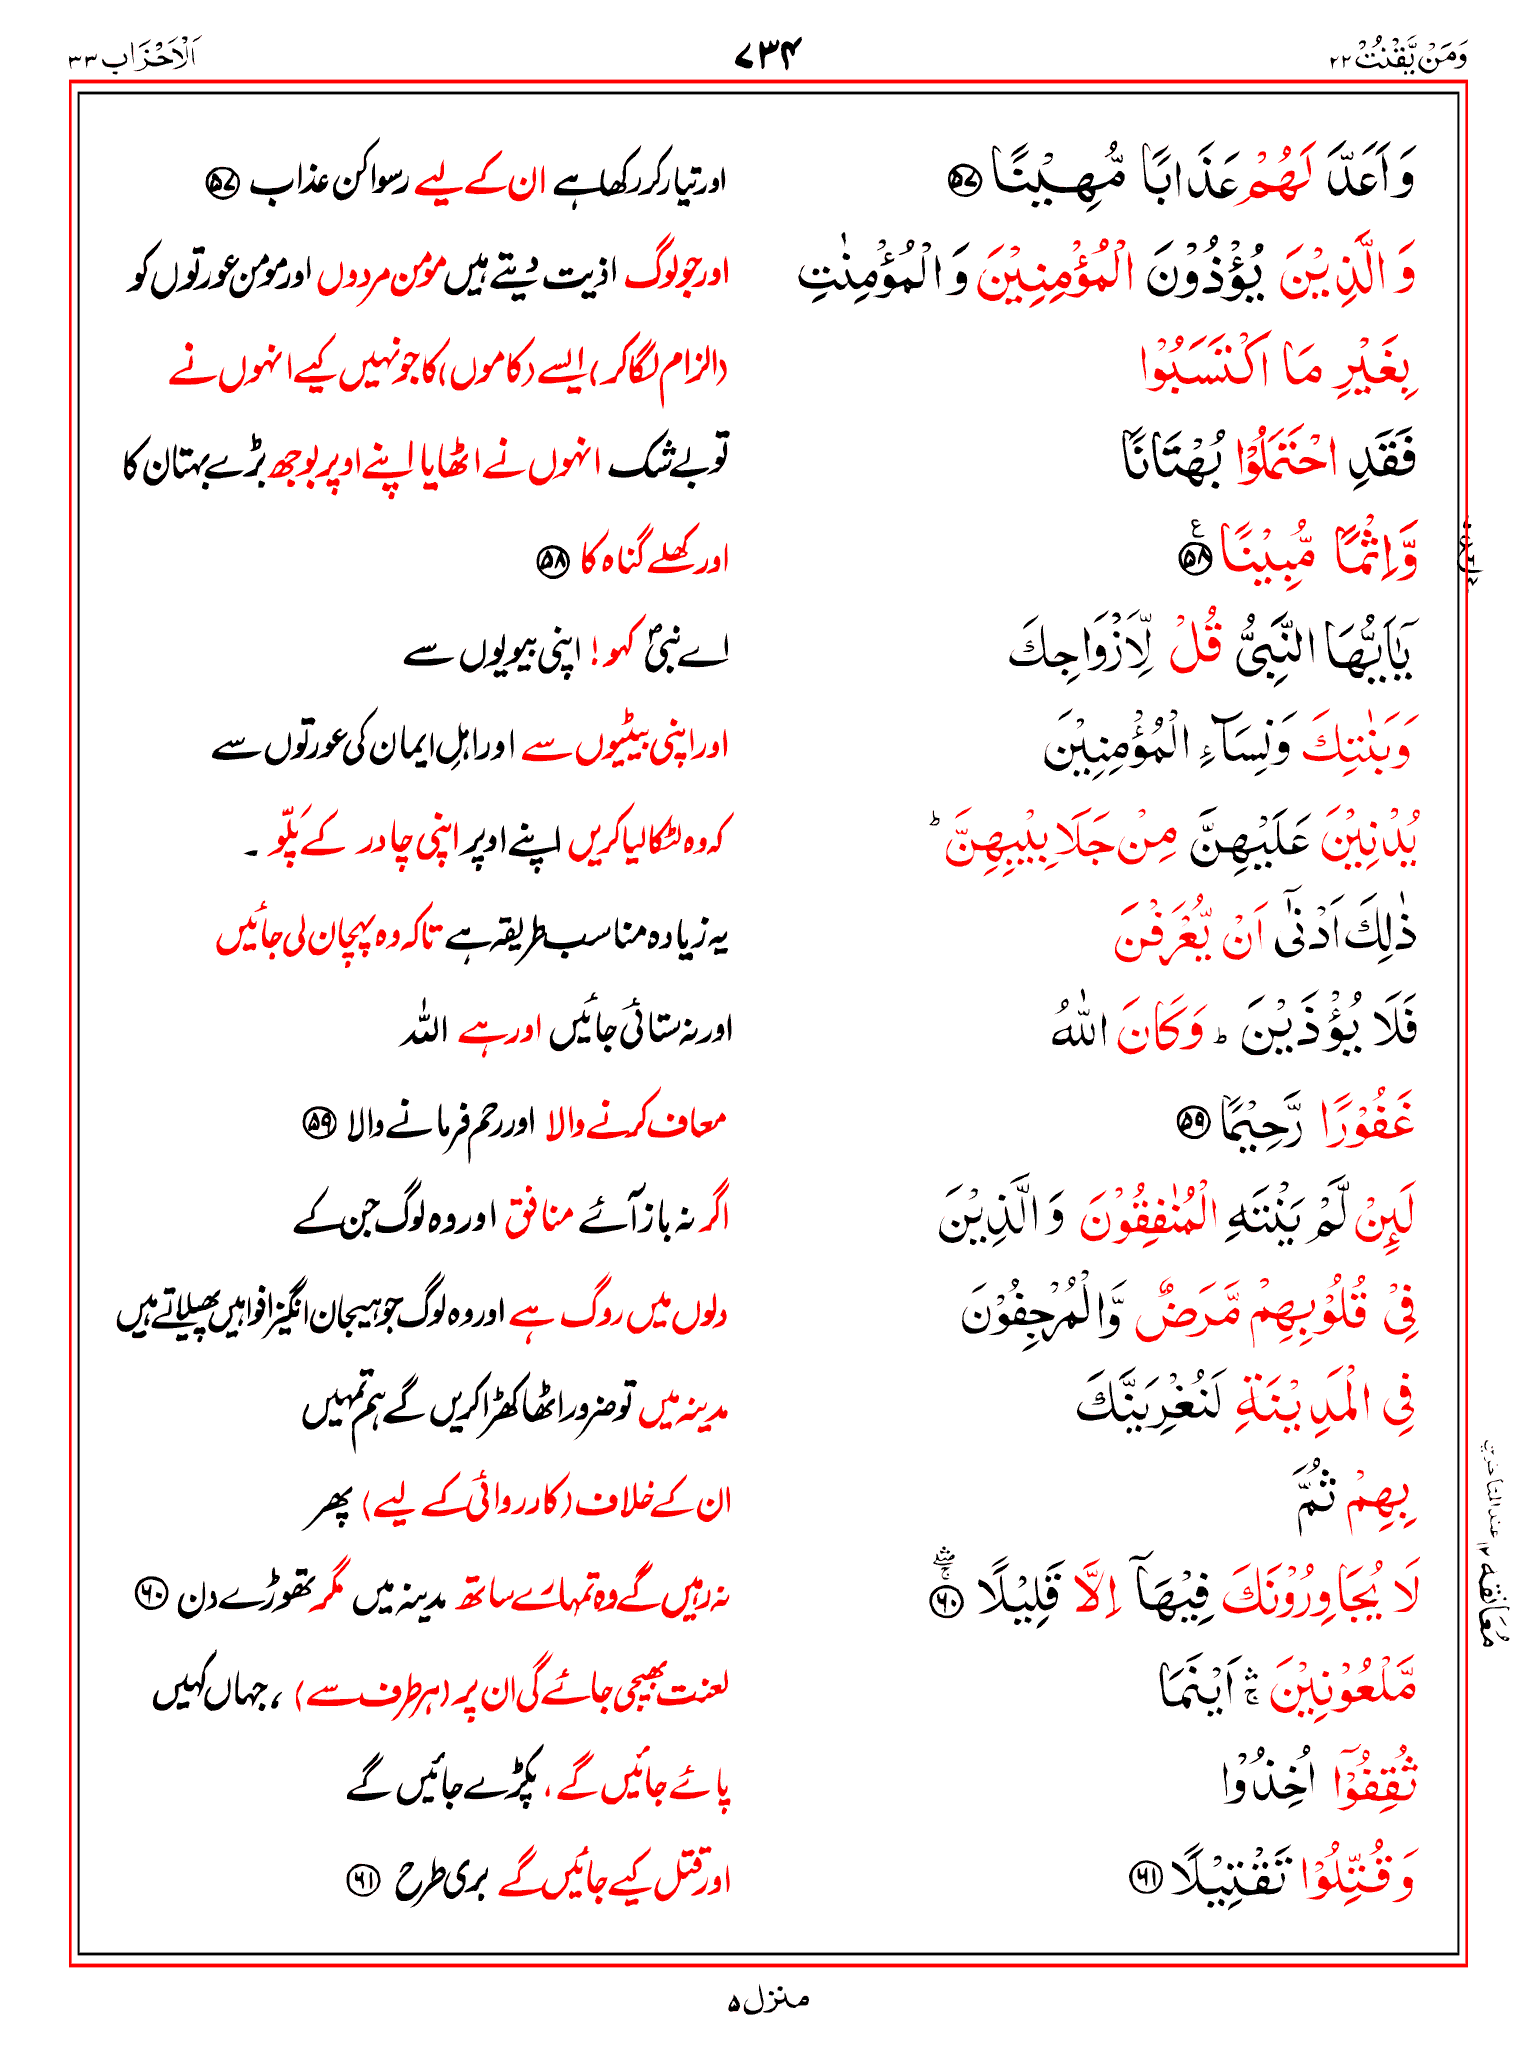 وَمَنْ يَّقْنُتْ ۲۲ ۷۳۴ اَلْاَحْزَاب ۳۳
وَاَعَدَّ لَهُمْ عَذَابًا مُّهِيْنًا ۵۷ اور تیار کر رکھا ہے ان کے لیے رسوا کن عذاب ۵۷
وَالَّذِيْنَ يُؤْذُوْنَ الْمُؤْمِنِيْنَ وَالْمُؤْمِنٰتِ اور جو لوگ اذیت دیتے ہیں مومن مردوں اور مومن عورتوں کو
بِغَيْرِ مَا اكْتَسَبُوْا (الزام لگا کر) ایسے (کاموں) کا جو نہیں کیے انہوں نے
فَقَدِ احْتَمَلُوْا بُهْتَانًا تو بے شک انہوں نے اٹھایا اپنے اوپر بوجھ بڑے بہتان کا
وَّاِثْمًا مُّبِيْنًا ۵۸ ع اور کھلے گناہ کا ۵۸
يٰٓاَيُّهَا النَّبِيُّ قُلْ لِّاَزْوَاجِكَ اے نبیؐ کہو! اپنی بیویوں سے
وَبَنٰتِكَ وَنِسَآءِ الْمُؤْمِنِيْنَ اور اپنی بیٹیوں سے اور اہلِ ایمان کی عورتوں سے
يُدْنِيْنَ عَلَيْهِنَّ مِنْ جَلَابِيْبِهِنَّ ؕ کہ وہ لٹکا لیا کریں اپنے اوپر اپنی چادر کے پَلّو ۔
ذٰلِكَ اَدْنٰٓى اَنْ يُّعْرَفْنَ یہ زیادہ مناسب طریقہ ہے تاکہ وہ پہچان لی جائیں
فَلَا يُؤْذَيْنَ ؕ وَكَانَ اللّٰهُ اور نہ ستائی جائیں اور ہے اللہ
غَفُوْرًا رَّحِيْمًا ۵۹ معاف کرنے والا اور رحم فرمانے والا ۵۹
لَىِٕنْ لَّمْ يَنْتَهِ الْمُنٰفِقُوْنَ وَالَّذِيْنَ اگر نہ باز آئے منافق اور وہ لوگ جن کے
فِيْ قُلُوْبِهِمْ مَّرَضٌ وَّالْمُرْجِفُوْنَ دلوں میں روگ ہے اور وہ لوگ جو ہیجان انگیز افواہیں پھیلاتے ہیں
فِي الْمَدِيْنَةِ لَنُغْرِيَنَّكَ مدینہ میں تو ضرور اٹھا کھڑا کریں گے ہم تمہیں
بِهِمْ ثُمَّ ان کے خلاف (کارروائی کے لیے) پھر
لَا يُجَاوِرُوْنَكَ فِيْهَآ اِلَّا قَلِيْلًا ۶۰ نہ رہیں گے وہ تمہارے ساتھ مدینہ میں مگر تھوڑے دن ۶۰
معانقه ۱۲ عند المتأخرين
مَّلْعُوْنِيْنَ ۛۚ اَيْنَمَا لعنت بھیجی جائے گی ان پر (ہر طرف سے) ، جہاں کہیں
ثُقِفُوْٓا اُخِذُوْا پائے جائیں گے، پکڑے جائیں گے
وَقُتِّلُوْا تَقْتِيْلًا ۶۱ اور قتل کیے جائیں گے بری طرح ۶۱
منزل ۵